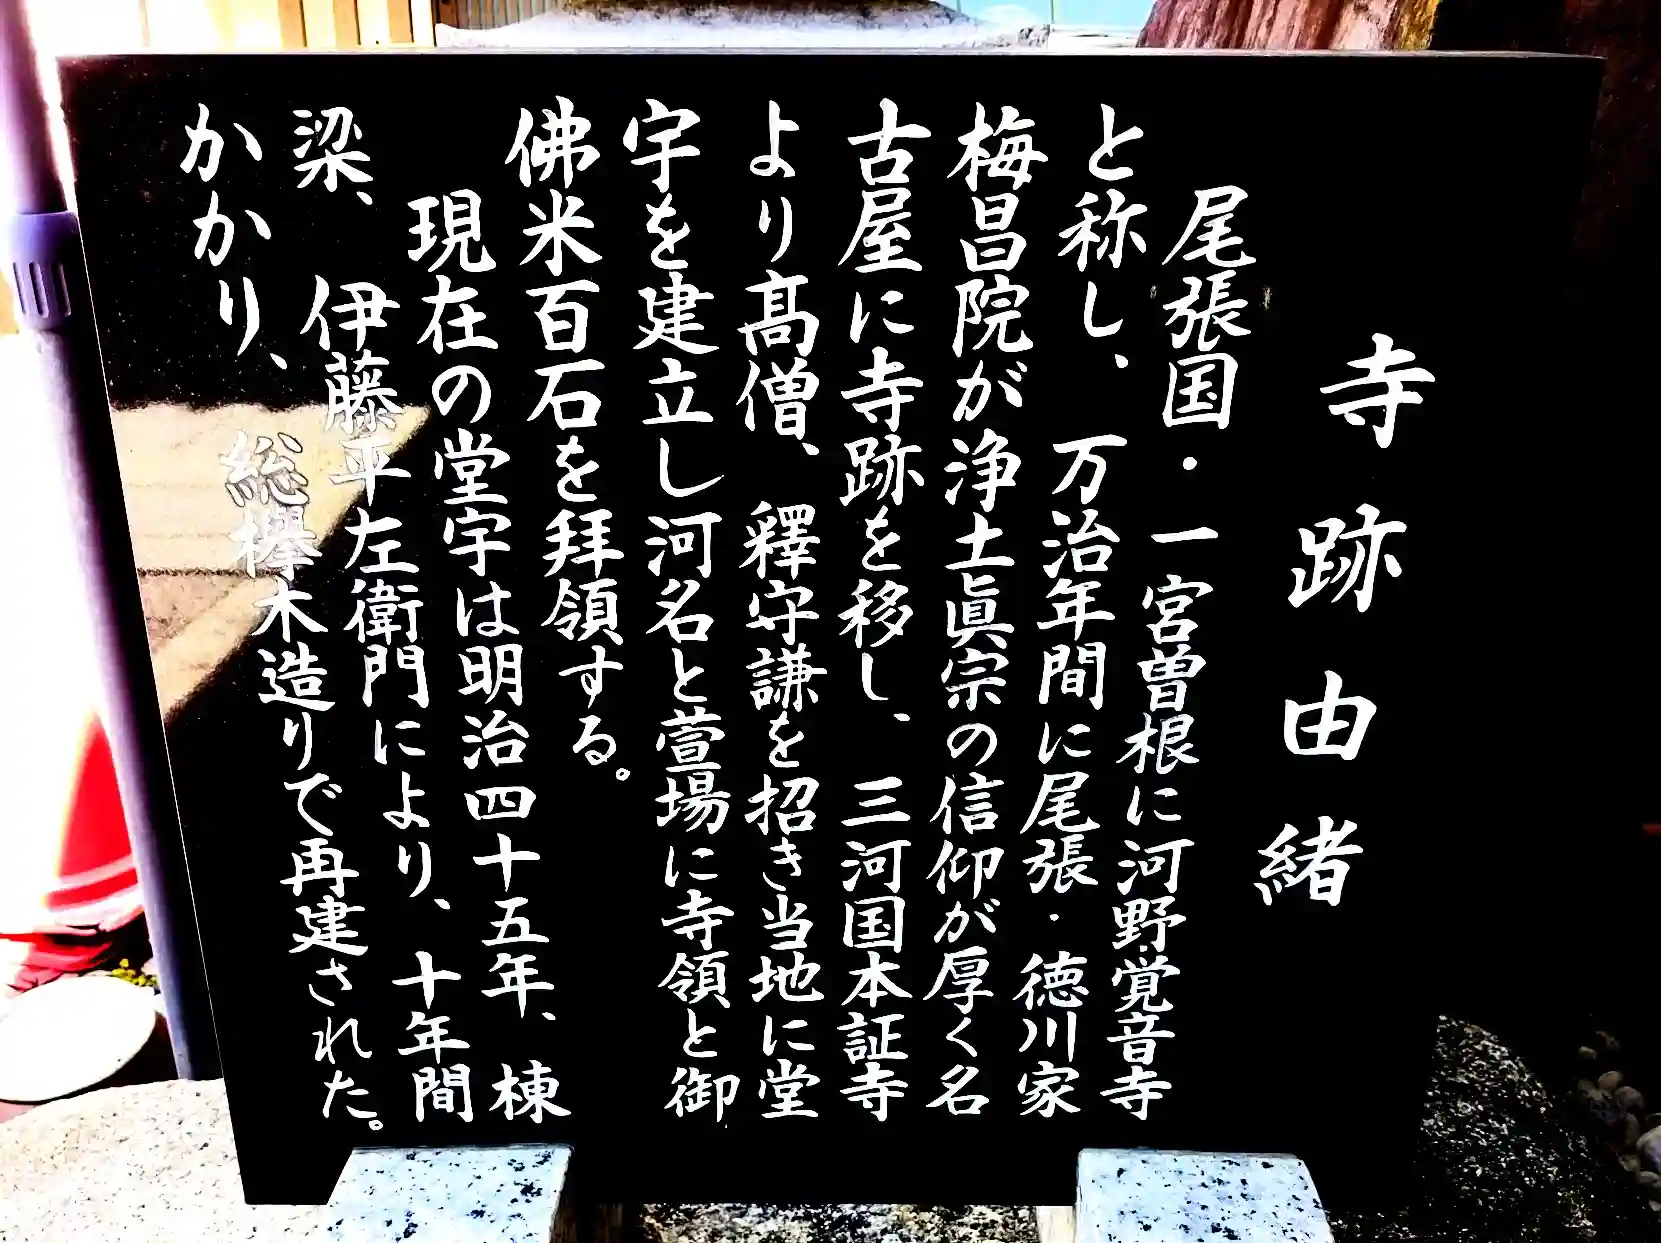 寺跡由緒
尾張国・一宮曽根に河野覚音寺
と称し、万治年間に尾張・徳川家
梅昌院が浄土眞宗の信仰が厚く名
古屋に寺跡を移し、三河国本証寺
より髙僧、釋守謙を招き当地に堂
宇を建立し河名と萱場に寺領と御
佛米百石を拝領する。
現在の堂宇は明治四十五年、棟
梁、伊藤平左衛門により、十年間
かかり、総欅木造りで再建された。